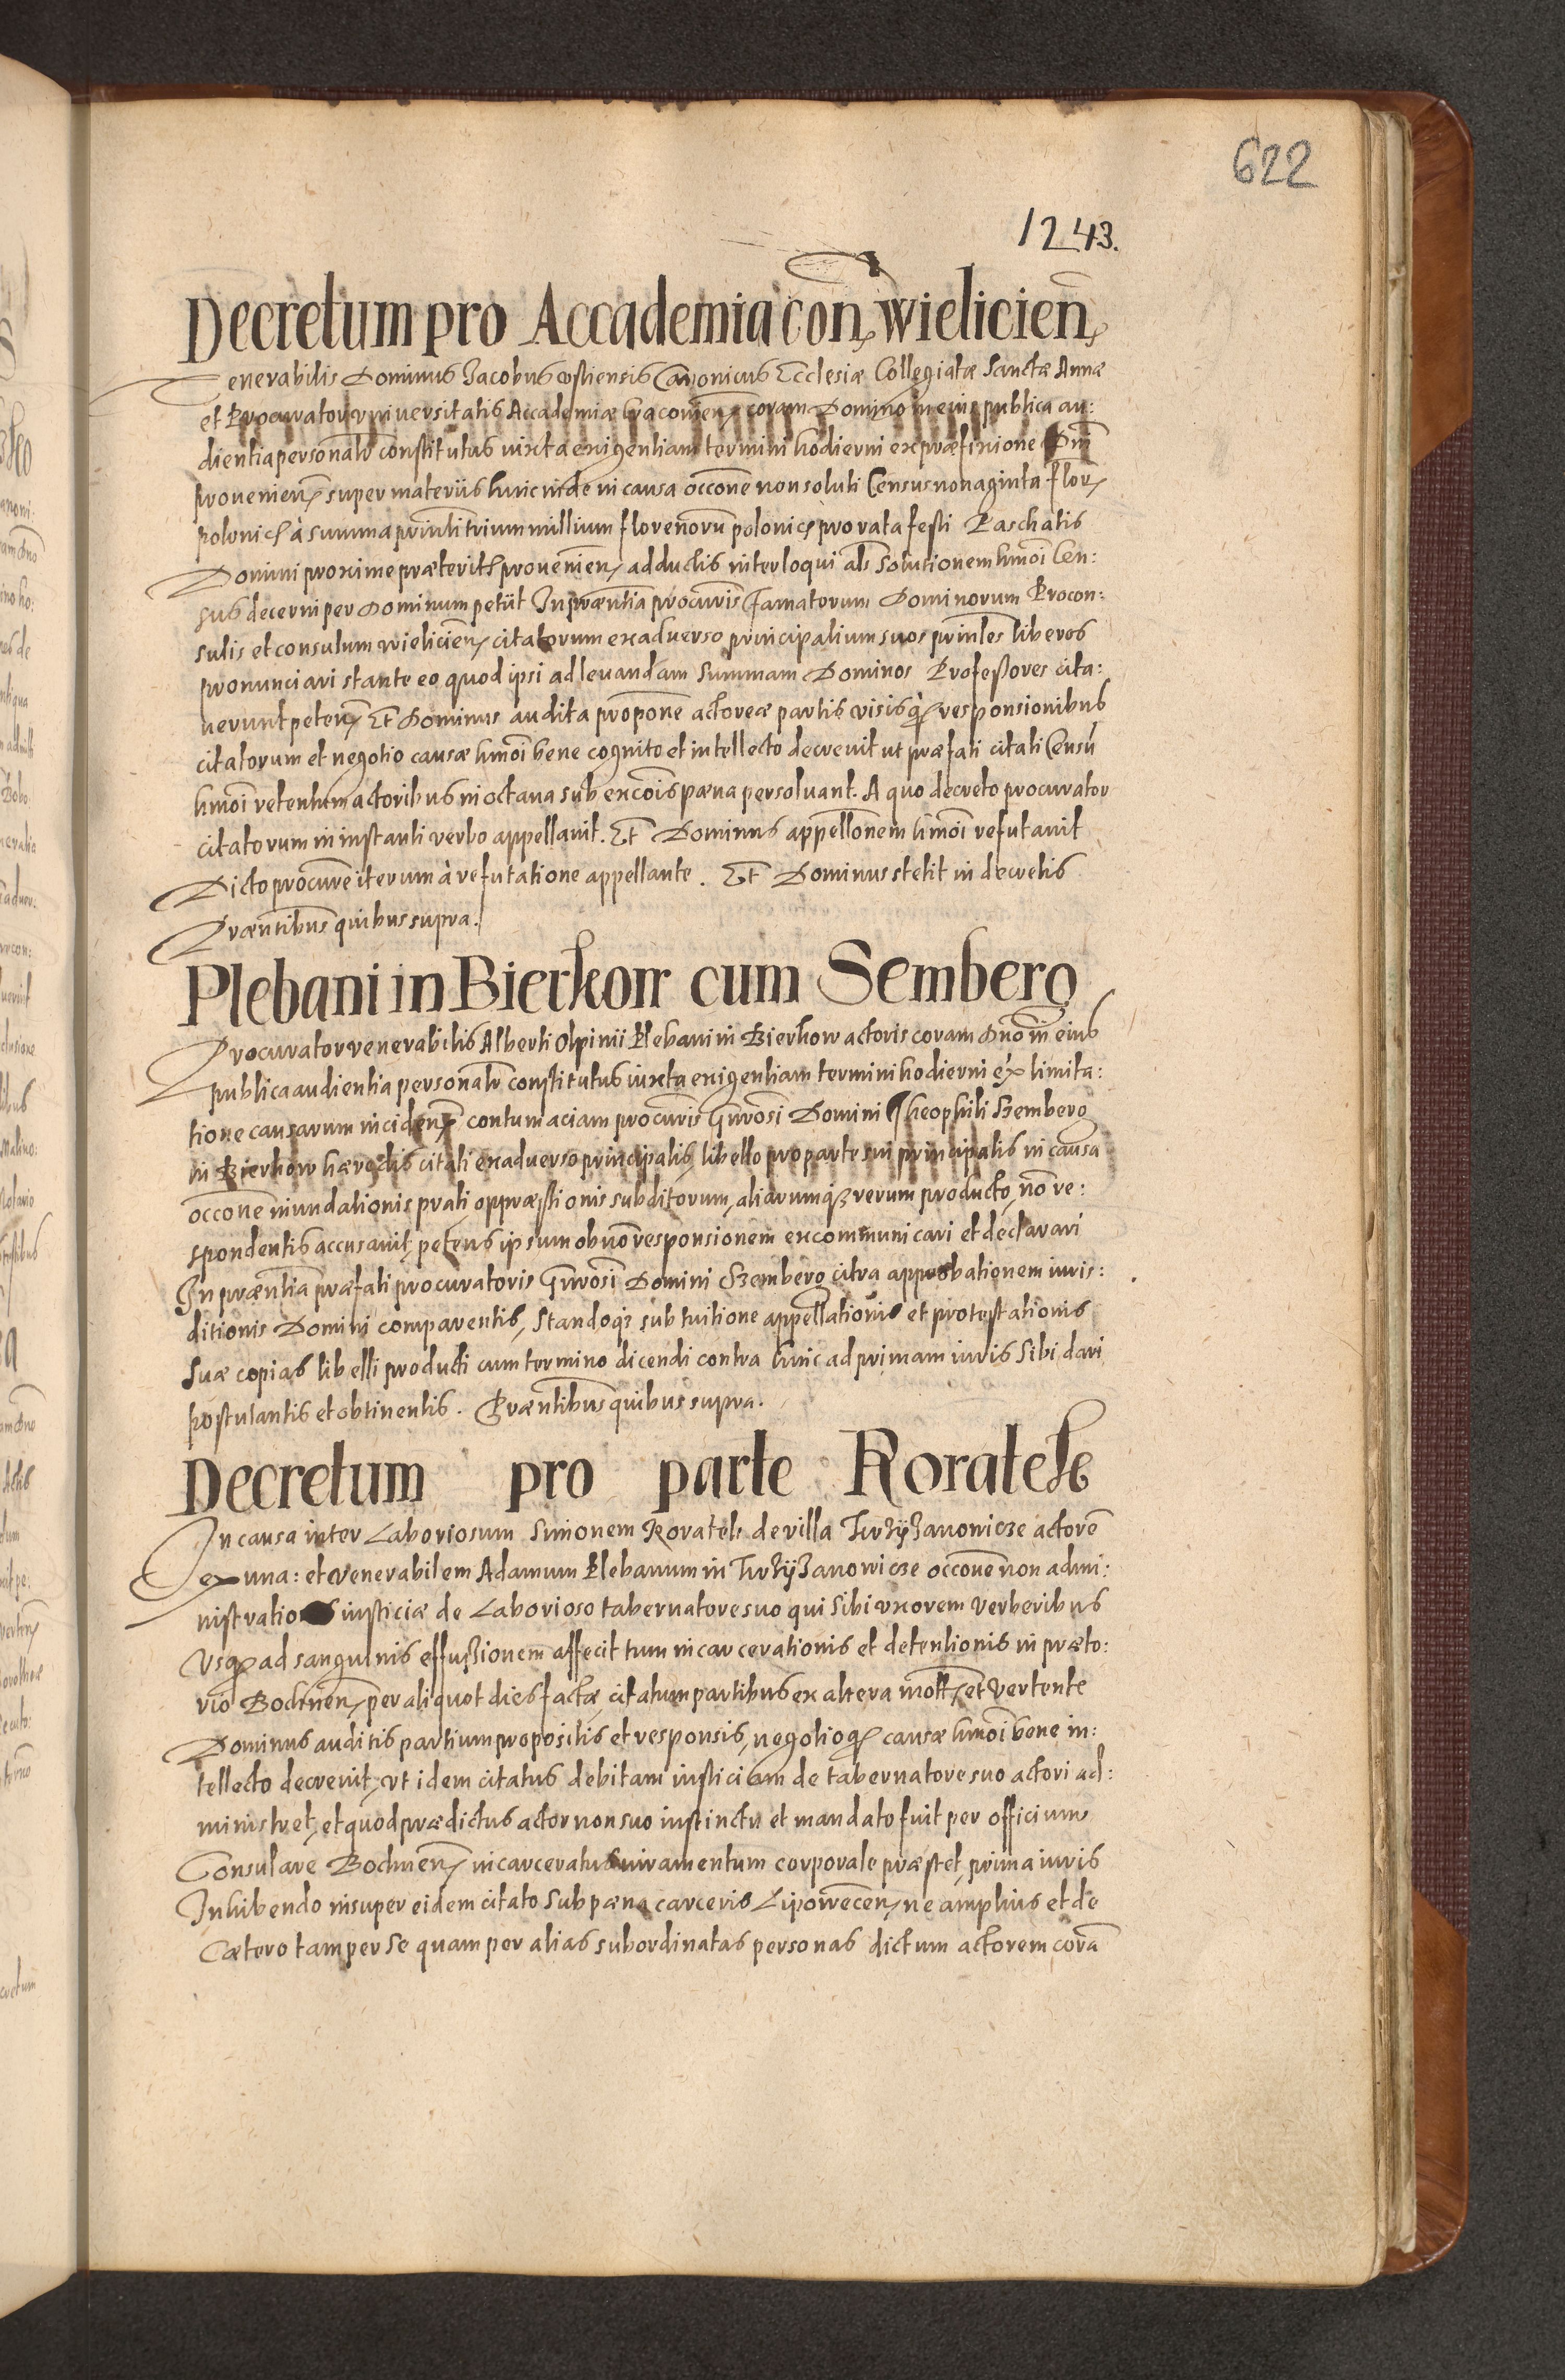 622
1243.
Decretum pro Accademia con wielicien
Venerabilis Dominus Jacobus ostiensis Canonicus Ecclesiæ Collegiatæ Sanctæ Annæ
et Procurator vniversitatis Accademiæ Cracovien coram Domino in eius publica au:
dientia personalr constitutus iuxta exigentiam termini hodierni ex præfixione Dni
provenien super materiis huic inde in causa occone non soluti Census nonaginta flor
polonich à summa prinlti trium millium florenorum polonich pro rata festi Paschatis
Domini proxime præteriti provenien adductis interloqui als Solutionem hmoi Cen:
sus decerni per Dominum petiit In præntia procuris famatorum Dominorum Procon:
sulis et consulum wielicien citatorum ex adverso principalium suos prinles liberos
pronunciari stante eo quod ipsi ad levandam Summam Dominos Professores cita:
verunt peten Et Dominus audita propone actoreæ partis visisq responsionibus
citatorum et negotio causæ hmoi bene cognito et intellecto decrevit ut præfati citati Censū
hmoi retentum actoribus in octava sub excois pæna persolvant. A quo decreto procurator
citatorum in instanti verbo appellavit. Et Dominus appellonem hmoi refutavit
Dicto procure iterum à refutatione appellante. Et Dominus stetit in decretis
Præntibus quibus supra.
Plebani in Bierkow cum Semberg
Procurator venerabilis Alberti Olpinii Plebani in Bierkow actoris coram Dno in eius
publica audientia personalr constitutus iuxta exigentiam termini hodierni ex limita:
tione causarum inciden contumaciam procuris Gnrosi Domini Theophili Szemberg
in Bierkow hæredis citati ex adverso principalis, libello pro parte sui principalis in causa
occone inundationis prati oppræssionis subditorum, aliarumq rerum producto, nō re:
spondentis accusavit, petens ipsum ob nō responsionem excommunicari et declarari
In præntia præfati procuratoris Gnrosi Domini Szemberg citra approbationem iuris:
ditionis Domini comparentis, Standoq sub tuitione appellationis et protestationis
Suæ copias libelli producti cum termino dicendi contra hinc ad primam iuris Sibi dari
postulantis et obtinentis. Præntibus quibus supra.
Decretum pro parte Koratek
In causa inter Laboriosum Simonem Koratek de villa Trzijanowicze actorē
ex una: et venerabilem Adamum Plebanum in Trzijanowicze occone non admi:
nistrationis iusticiæ de Laborioso tabernatore suo qui Sibi uxorem verberibus
Usq ad sanguinis effussionem affecit tum incarcerationis et detentionis in præto:
rio Bochnen per aliquot dies factæ, citatum partibus ex altera mott et vertente
Dominus auditis partium propositis et responsis, negotioq causæ hmoi bene in:
tellecto decrevit, ut idem citatus debitam iusticiam de tabernatore suo actori ad:
ministret, et quod prædictus actor non suo instinctu et mandato fuit per officium
Consulare Bochnen incarceratus iuramentum corporale præstet, prima iuris
Inhibendo insuper eidem citato Sub pæna carceris Lipowecen ne amplius et de
Cætero tam per se quam per alias subordinatas personas dictum actorem corā